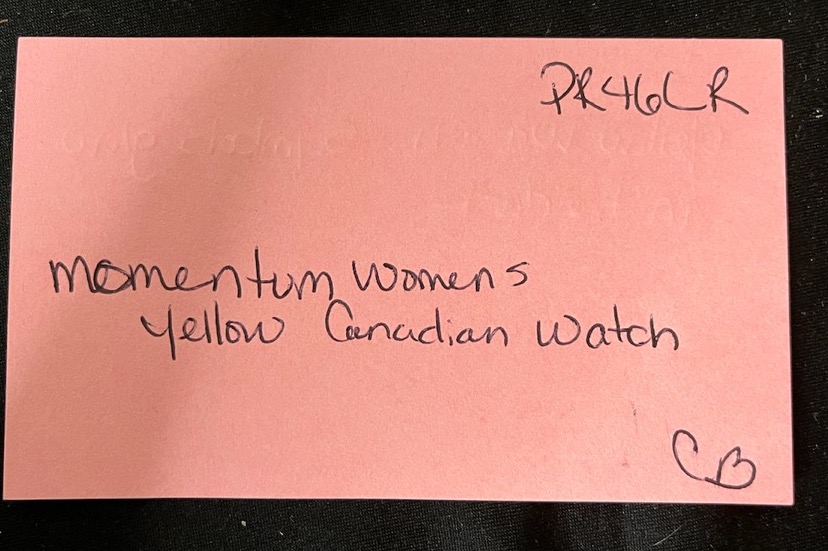 PR46LR
momentum womens
yellow Canadian watch
CB